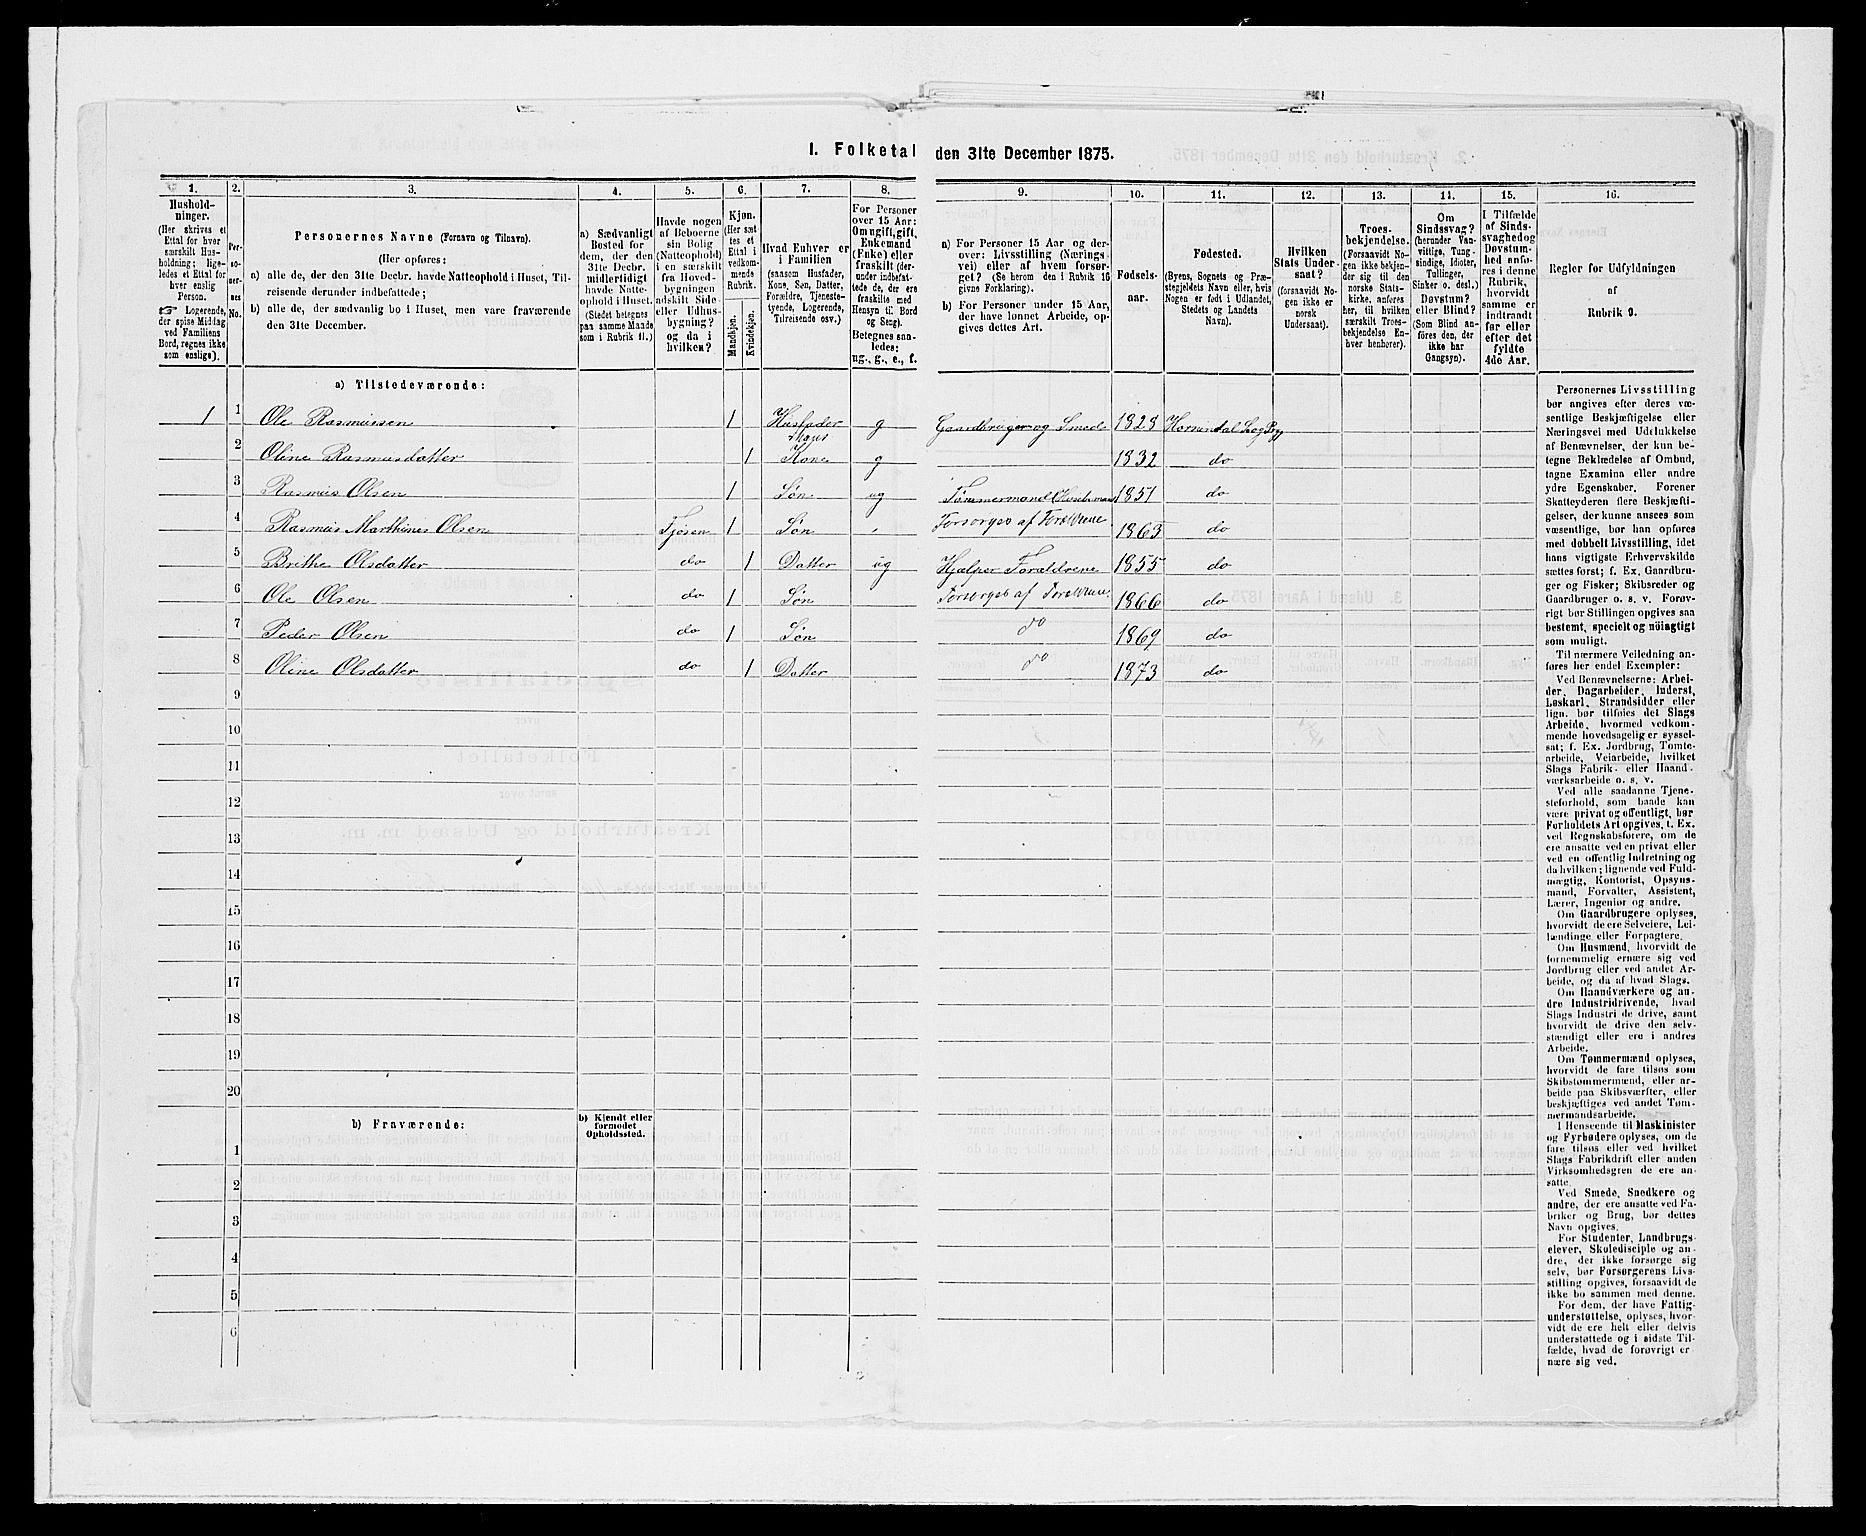 I. Folketal den 31te December 1875.
1. 2. 3. 4. 5. 6. 7. 8. 9. 10. 11. 12. 13. 14. 15. 16.
Hushold-
ninger.
(Her skrives et
Ettal for hver
særskilt Hus-
holdning; lige-
ledes et Ettal for
hver enslig
Person.
☞ Logerende,
der spise Middag
ved Familiens
Bord, regnes ikke
som enslige).
Per-
so-
ner-
nes
No.
Personernes Navne (Fornavn og Tilnavn).
(Her opføres:
a) alle de, der den 31te Decbr. havde Natteophold i Huset, Til-
reisende derunder indbefattede;
b) alle de, der sædvanlig bo i Huset, men vare fraværende
den 31te December.
a) Sædvanligt
Bosted for
dem, der den
31te Decbr.
midlertidigt
havde Natte-
ophold i Huset.
(Stedet betegnes
paa samme Maade
som i Rubrik 11.)
Havde nogen
af Beboerne
sin Bolig
(Natteophold)
i en særskilt
fra Hoved-
bygningen
adskilt Side-
eller Udhus-
bygning?
og da i
hvilken?
Kjøn.
(Her sæt-
tes et
Ettal i
vedkom-
mende
Rubrik.
Mandkjøn.
Kvindekjøn.
Hvad Enhver er
i Familien
(saasom Husfader,
Kone, Søn, Datter,
Forældre, Tjeneste-
tyende, Logerende,
Tilreisende osv.)
For Personer
over 15 Aar:
Om ugift, gift,
Enkemand
(Enke) eller
fraskilt (der-
under indbefat-
tede de, der ere
fraskilte med
Hensyn til Bord
og Seng).
Betegnes saa-
ledes:
ug., g., e., f.
a) For Personer 15 Aar og der-
over: Livsstilling (Nærings-
vei) eller af hvem forsør-
get? (Se herom den i Rubrik 16
givne Forklaring).
b) For Personer under 15 Aar,
der have lønnet Arbeide, op-
gives dettes Art.
Fødsels-
aar.
Fødested.
(Byens, Sognets og Præ-
stegjeldets Navn eller, hvis
Nogen er født i Udlandet,
Stedets og Landets
Navn).
Hvilken
Stats Under-
saat?
(forsaavidt No-
gen ikke er
norsk
Undersaat).
Troes-
bekjendelse.
(Forsaavidt No-
gen ikke bekjen-
der sig til den
norske Stats-
kirke, anføres
her, til hvilken
særskilt Troes-
bekjendelse En-
hver henhører).
Om
Sindssvag?
(herunder Van-
vittige, Tung-
sindige, Idioter,
Tullinger,
Sinker o. desl.)
Døvstum?
eller Blind?
(Som Blind an-
føres den, der
ikke har
Gangsyn).
I Tilfælde
af Sinds-
svaghed og
Døvstum-
hed anfø-
res i denne
Rubrik,
hvorvidt
samme er
indtraadt
før eller
efter det
fyldte
4de Aar.
Regler for Udfyldningen
af
Rubrik 9.
a) Tilstedeværende:
1 1 Ole Rasmussen 1 Husfader g Gaardbruger og Smed 1828
2 Oline Rasmusdatter 1 Hans Kone g 1832 do
3 Rasmus Olsen 1 Søn ug Tømmermand 1851 do
4 Rasmus Marthines Olsen Fjøsen 1 Søn Forsørges af Forældrene 1863 do
5 Brithe Olsdatter do 1 Datter ug Hjælper Forældrene 1855 do
6 Ole Olsen do 1 Søn Forsørges af Forældrene. 1866 do
7 Peder Olsen do 1 Søn do 1869 do
8 Oline Olsdatter do 1 Datter do 1873 do
9
10
11
12
13
14
15
16
17
18
19
20
b) Fraværende:
b) Kjendt eller
formodet
Opholdssted.
1
2
3
4
5
6
Personernes Livsstilling
bør angives efter deres væ-
sentlige Beskjæftigelse eller
Næringsvei med Udelukkelse
af Benævnelser, der kun be-
tegne Beklædelse af Ombud,
tagne Examina eller andre
ydre Egenskaber. Forener
Skatteyderen flere Beskjæfti-
gelser, der kunne ansees som
væsentlige, bør han opføres
med dobbelt Livsstilling, idet
hans vigtigste Erhvervskilde
sættes først; f. Ex. Gaardbru-
ger og Fisker; Skibsreder og
Gaardbruger o. s. v. Forøv-
rigt bør Stillingen opgives saa
bestemt, specielt og nöiagtigt
som muligt.
Til nærmere Veiledning an-
føres her endel Exempler:
Ved Benævnelserne: Arbei-
der, Dagarbeider, Inderst,
Løskarl, Strandsidder eller
lign. bør tilføies det Slags
Arbeide, hvormed vedkom-
mende hovedsagelig er syssel-
sat; f. Ex. Jordbrug, Tomte-
arbeide, Veiarbeide, hvilket
Slags Fabrik- eller Haand-
værksarbeide o. s. v.
Ved alle saadanne Tjene-
steforhold, som baade kan
være privat og offentligt, bør
Forholdets Art opgives, t. Ex.
ved Regnskabsførere, om de
ere ansatte ved en privat eller
ved en offentlig Indretning og
da hvilken; lignende ved Fuld-
mægtig, Kontorist, Opsyns-
mand, Forvalter, Assistent,
Lærer, Ingeniør og andre.
Om Gaardbrugere oplyses,
hvorvidt de ere Selveiere, Lei-
lændinge eller Forpagtere.
Om Husmænd, hvorvidt de
fornemmelig ernære sig ved
Jordbrug eller ved andet Ar-
beide, og da af hvad Slags.
Om Haandværkere og an-
dre Industridrivende, hvad
Slags Industri de drive, samt
hvorvidt de drive den selv-
stændigt eller ere i andres
Arbeide.
Om Tømmermænd oplyses,
hvorvidt de fare tilsøs som
Skibstømmermænd, eller ar-
beide paa Skibsværfter, eller
beskjæftiges ved andet Tøm-
mermandsarbeide.
I Henseende til Maskinister
og Fyrbødere oplyses, om de
fare tilsøs eller ved hvilket
Slags Fabrikdrift eller anden
Virksomhedsgren de ere an-
satte.
Ved Smede, Snedkere og
andre, der ere ansatte ved Fa-
briker og Brug, bør dettes
Navn opgives.
For Studenter, Landbrugs-
elever, Skoledisciple og an-
dre, der ikke forsørge sig
selv, bør Forsørgerens Livs-
stilling opgives, forsaavidt de
ikke bo sammen med denne.
For dem, der have Fattig-
understøttelse, oplyses, hvor-
vidt de ere helt eller delvis
understøttede og i sidste Til-
fælde, hvad de forøvrigt er-
nære sig ved.